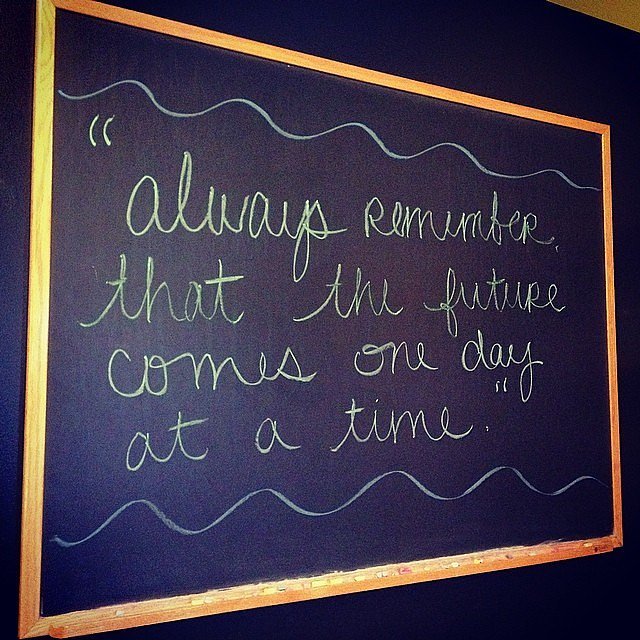 "always remember
that the future
comes one day
at a time."